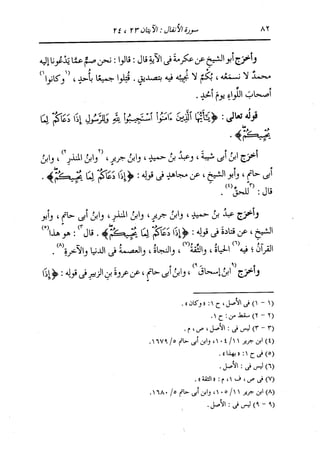 ٨٢ سورة الأنفال : الآيتان ٢٣ ، ٢٤
وأخرَج أبو الشيخِ عن عكرمةَ فى الآيةِ قال : قالوا : نحن صُمٌّ عمَّا يَدْعُونا إليه
محمدٌ لا نسمَعُه ، بُكْمٌ لا نُجِيبُه فيه بتصديقٍ . قُتِلوا جميعًا بأُحدٍ ، (١ وكانوا ١)
أصحابَ اللواءِ يومَ أُحُدٍ .
قولُه تعالى : ﴿ يَٰٓأَيُّهَا ٱلَّذِينَ ءَامَنُوا۟ ٱسْتَجِيبُوا۟ لِلَّهِ وَلِلرَّسُولِ إِذَا دَعَاكُمْ لِمَا
يُحْيِيكُمْ ﴾ .
أخرَج ابنُ أبى شيبةَ ، وعبدُ بنُ حميدٍ ، وابنُ جريرٍ ، (٢ وابنُ المنذرِ ٢) ، وابنُ
أبى حاتمٍ ، وأبو الشيخِ ، عن مجاهدٍ فى قولِه : ﴿ إِذَا دَعَاكُمْ لِمَا يُحْيِيكُمْ ﴾ .
قال : (٣ للحقِّ (٤) .
وأخرَج عبدُ بنُ حميدٍ ، وابنُ جريرٍ ، وابنُ المنذرِ ، وابنُ أبى حاتمٍ ، وأبو
الشيخِ ، عن قتادةَ فى قولِه : ﴿ إِذَا دَعَاكُمْ لِمَا يُحْيِيكُمْ ﴾ . قال ٣) : هو هذا (٥)
القرآنُ ؛ فيه (٦) الحياةُ ، والثقةُ (٧) ، والنجاةُ ، والعصمةُ فى الدنيا والآخرةِ (٨) .
وأخرَج (٩ ابنُ إسحاقَ ٩) ، وابنُ أبى حاتمٍ ، عن عروةَ بنِ الزبيرِ فى قولِه : ﴿ إِذَا
(١ - ١) فى الأصل ، ح ١ : « وكان » .
(٢ - ٢) سقط من : ح ١ .
(٣ - ٣) ليس فى : الأصل ، ص ، م .
(٤) ابن جرير ١١/ ١٠٤ ، وابن أبى حاتم ٥/ ١٦٧٩ .
(٥) فى ح ١ : « بهذا » .
(٦) ليس فى : الأصل .
(٧) فى ص ، ف ١ ، م : « الثقة » .
(٨) ابن جرير ١١/ ١٠٥ ، وابن أبى حاتم ٥/ ١٦٨٠ .
(٩ - ٩) ليس فى : الأصل .